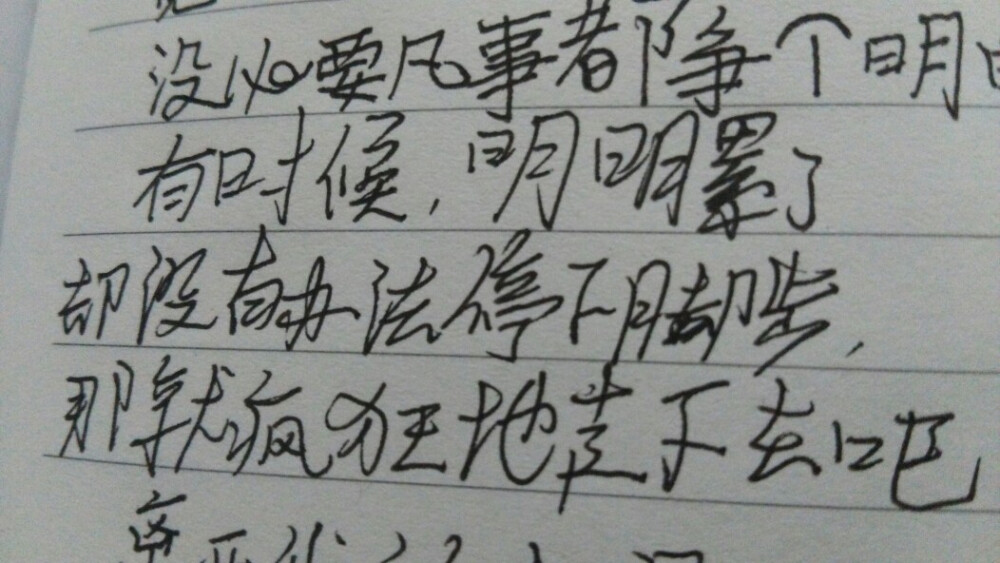 没必要凡事都争个明
有时候,明明累了
却没有办法停下脚步,
那就疯狂地走下去吧